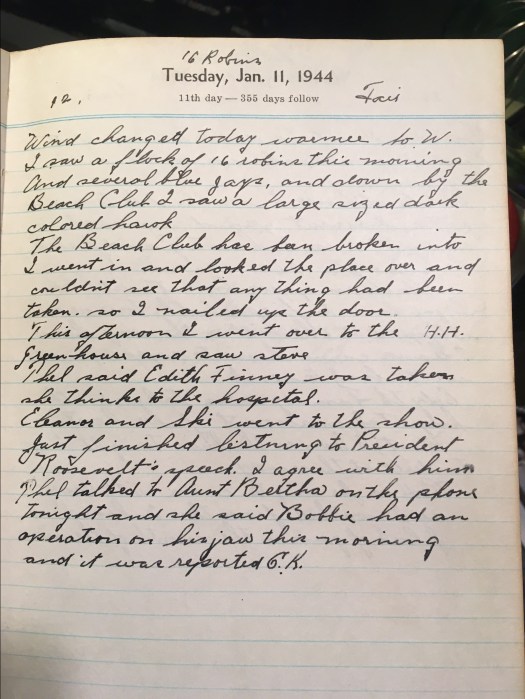 16 Robins
Tuesday, Jan. 11, 1944
12. 11th day — 355 days follow Fair
Wind changed today warmer to W.
I saw a flock of 16 robins this morning
And several blue Jays, and down by the
Beach Club I saw a large sized dark
colored hawk
The Beach Club has been broken into
I went in and looked the place over and
couldn't see that any thing had been
taken. so I nailed up the door.
This afternoon I went over to the H.H.
Greenhouse and saw steve
Phel said Edith Finney was taken
she thinks to the hospital.
Eleanor and Ski went to the show.
Just finished listning to President
Roosevelt's speech. I agree with him
Phel talked to Aunt Bertha on the phone
tonight and she said Bobbie had an
operation on his jaw this morning
and it was reported O.K.